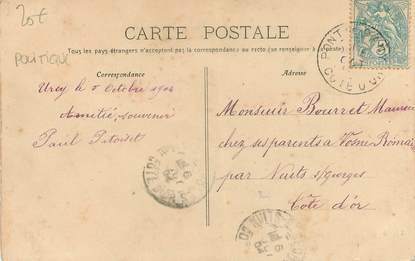 20€
POLITIQUE
CARTE POSTALE
Tous les pays étrangers n'acceptent pas la correspondance au recto (se renseigner à la poste)
Correspondance
Adresse
Urcy le 5 Octobre 1904
Amitié, souvenir
Paul Pitoiset
Monsieur Bourret Maurice
chez ses parents à Vosne-Romanée
par Nuits s/Georges
Côte d'or
CÔTE D'OR